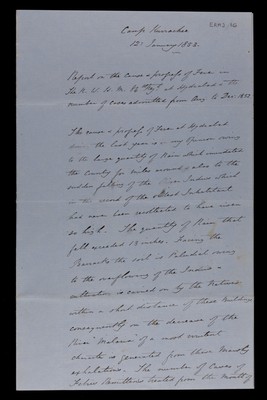 Camp Kurrachee
12th January 1853.
Report on the cause & progress of Fever in
the H. M. at Hyderabad & the
number of cases admitted from Aug to Dec. 1852
The cause & progress of Fever at Hyderabad
the last year is in my opinion owing
to the large quantity of Rain which inundated
the country for miles around, also to the
sudden of the River Indus which
in the record of the oldest Inhabitant
had never been recollected to have risen
so high. The quantity of Rain that
fell exceeded 13 inches. Facing the
Barracks the soil is Paludial owing
to the overflowing of the Indus &
cultivation is carried on by the Natives
within a short distance of these buildings
consequently on the decrease of the
River Malaria of a most virulent
character is generated from these Marshy
exhalations. The number of Cases of
Febris Remittens treated from the Month of